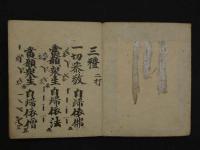 三禮 二打
一切恭敬 自歸依佛
當願衆生 自歸依法
當願衆生 自歸依僧